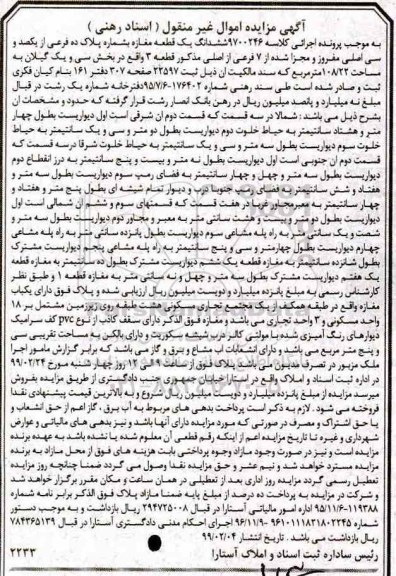 آگهی مزایده اموال غیر منقول ( اسناد رهنی )
به موجب پرونده اجرائی کلاسه ۹۷۰۰۲۴۶ ششدانگ یک قطعه مغازه بشماره پلاک ده فرعی از یکصد و
سی اصلی مفروز و مجزا شده از ۷ فرعی از اصلی مذکور قطعه ۳ واقع در بخش سی و یک گیلان به
مساحت ۱۰۸/۲۲ مترمربع که سند مالکیت ان ذیل ثبت ۲۳۵۹۷ صفحه ۳۰۷ دفتر ۱۶۱ بنام کیان فکری
ثبت و صادر شده است طی سند رهنی شماره ۱۷۶۴۰۲-۹۵/۷/۶ دفترخانه شماره یک رشت در قبال
مبلغ نه میلیارد و پانصد میلیون ریال در رهن بانک انصار رشت قرار گرفته که حدود و مشخصات ان
بشرح ذیل می باشد : شمالا در سه قسمت که قسمت دوم ان شرقی است اول دیواریست بطول چهار
متر و هشتاد سانتیمتر به حیاط خلوت دوم دیواریست بطول دو متر و سی و یک سانتیمتر به حیاط
خلوت سوم دیواریست بطول سه متر و سی و یک سانتیمتر به حیاط خلوت شرقا درسه قسمت که
قسمت دوم ان جنوبی است اول دیواریست بطول نه متر و بیست و پنج سانتیمتر به درز انقطاع دوم
دیواریست بطول سه متر و چهل و چهار سانتیمتر به فضای رمپ سوم دیواریست بطول سه متر و
هفتاد و شش سانتیمتر به فضای رمپ جنوبا درب و دیوار تمام شیشه ای بطول پنج متر و هفتاد و
چهار سانتیمتر به معبرمجاور غربا در هفت قسمت که قسمتهای سوم و ششم ان شمالی است اول
دیواریست بطول دو متر و بیست و هشت سانتی متر به معبر و مجاور دوم دیواریست بطول سه متر و
شصت و یک سانتی متر به راه پله مشاعی سوم دیواریست بطول پانزده سانتی متر به راه پله مشاعی
چهارم دیواریست بطول چهارمتر و سی و پنج سانتیمتر به راه پله مشاعی پنجم دیواریست مشترک
بطول شانزده سانتیمتر به مغازه قطعه یک ششم دیواریست مشترک بطول ده سانتیمتر به مغازه قطعه
یک هفتم دیواریست مشترک بطول سه متر و چهل و نه سانتی متر به مغازه قطعه ۱ و طبق نظر
کارشناس رسمی به مبلغ پانزده میلیارد و دویست میلیون ریال ارزیابی شده و پلاک فوق دارای یکباب
مغازه واقع در طبقه همکف یک مجتمع تجاری مسکونی هشت طبقه روی زیرزمین مشتمل بر ۱۸
واحد مسکونی و ۳ واحد تجاری می باشد و مغازه فوق الذکر دارای سقف کاذب از نوع pvc کف سرامیک
دیوارهای رنگ آمیزی شده با مولتی کالر درب شیشه سکوریت و دارای بالکن به مساحت تقریبی سی
و پنج متر مربع می باشد و دارای انشعابات اب مشاع و برق و گاز می باشد که برابر گزارش مامور اجرا
ملک مزبور در تصرف مدیون می باشد پلاک فوق از ساعت ۹ الی ۱۲ روز چهار شنبه مورخ ۹۹/۰۲/۲۴
در اداره ثبت اسناد و املاک واقع در آستارا خیابان جمهوری جنب دادگستری از طریق مزایده بفروش
میرسد مزایده از مبلغ پانزده میلیارد و دویست میلیون ریال شروع و به بالاترین قیمت پیشنهادی نقدا
فروخته می شود . لازم به ذکر است پرداخت بدهی های مربوط به آب برق ، گاز اعم از حق انشعاب و
یا حق اشتراک و مصرف در صورتی که مورد مزایده دارای آنها باشد و نیز بدهی های مالیاتی و عوارض
شهرداری و غیره تا تاریخ مزایده اعم از اینکه رقم قطعی آن معلوم شده یا نشده باشد به عهده برنده
مزایده است و نیز در صورت وجود مازاد وجوه پرداختی بابت هزینه های فوق از محل مازاد به برنده
مزایده مسترد خواهد شد و نیم عشر و حق مزایده نقدا وصول می گردد ضمنا چنانچه روز مزایده
تعطیل رسمی گردد مزایده روز اداری بعد از تعطیلی در همان ساعت و مکان مقرر برگزار خواهد شد
و شرکت در مزایده به پرداخت ده درصد از مبلغ پایه ضمنا مازاد پلاک فوق الذکر برابر نامه شماره
۱۱۹۳۸۸-۹۵/۱۱/۶ اداره امور مالیاتی آستارا در قبال ۲۹۴۷۲۵۰۰۸ ریال بازداشت و به موجب دستور
شماره ۹۶۱۰۱۱۱۸۲۱۸۰۲۲۴۵-۹۶/۱۱/۹ اجرای احکام مدنی دادگستری آستارا در قبال ۷۸۴۳۶۵۱۳۹
ریال بازداشت می باشد . تاریخ انتشار ۹۹/۰۲/۰۴
رئیس ساداره ثبت اسناد و املاک آستارا ۲۲۳۳